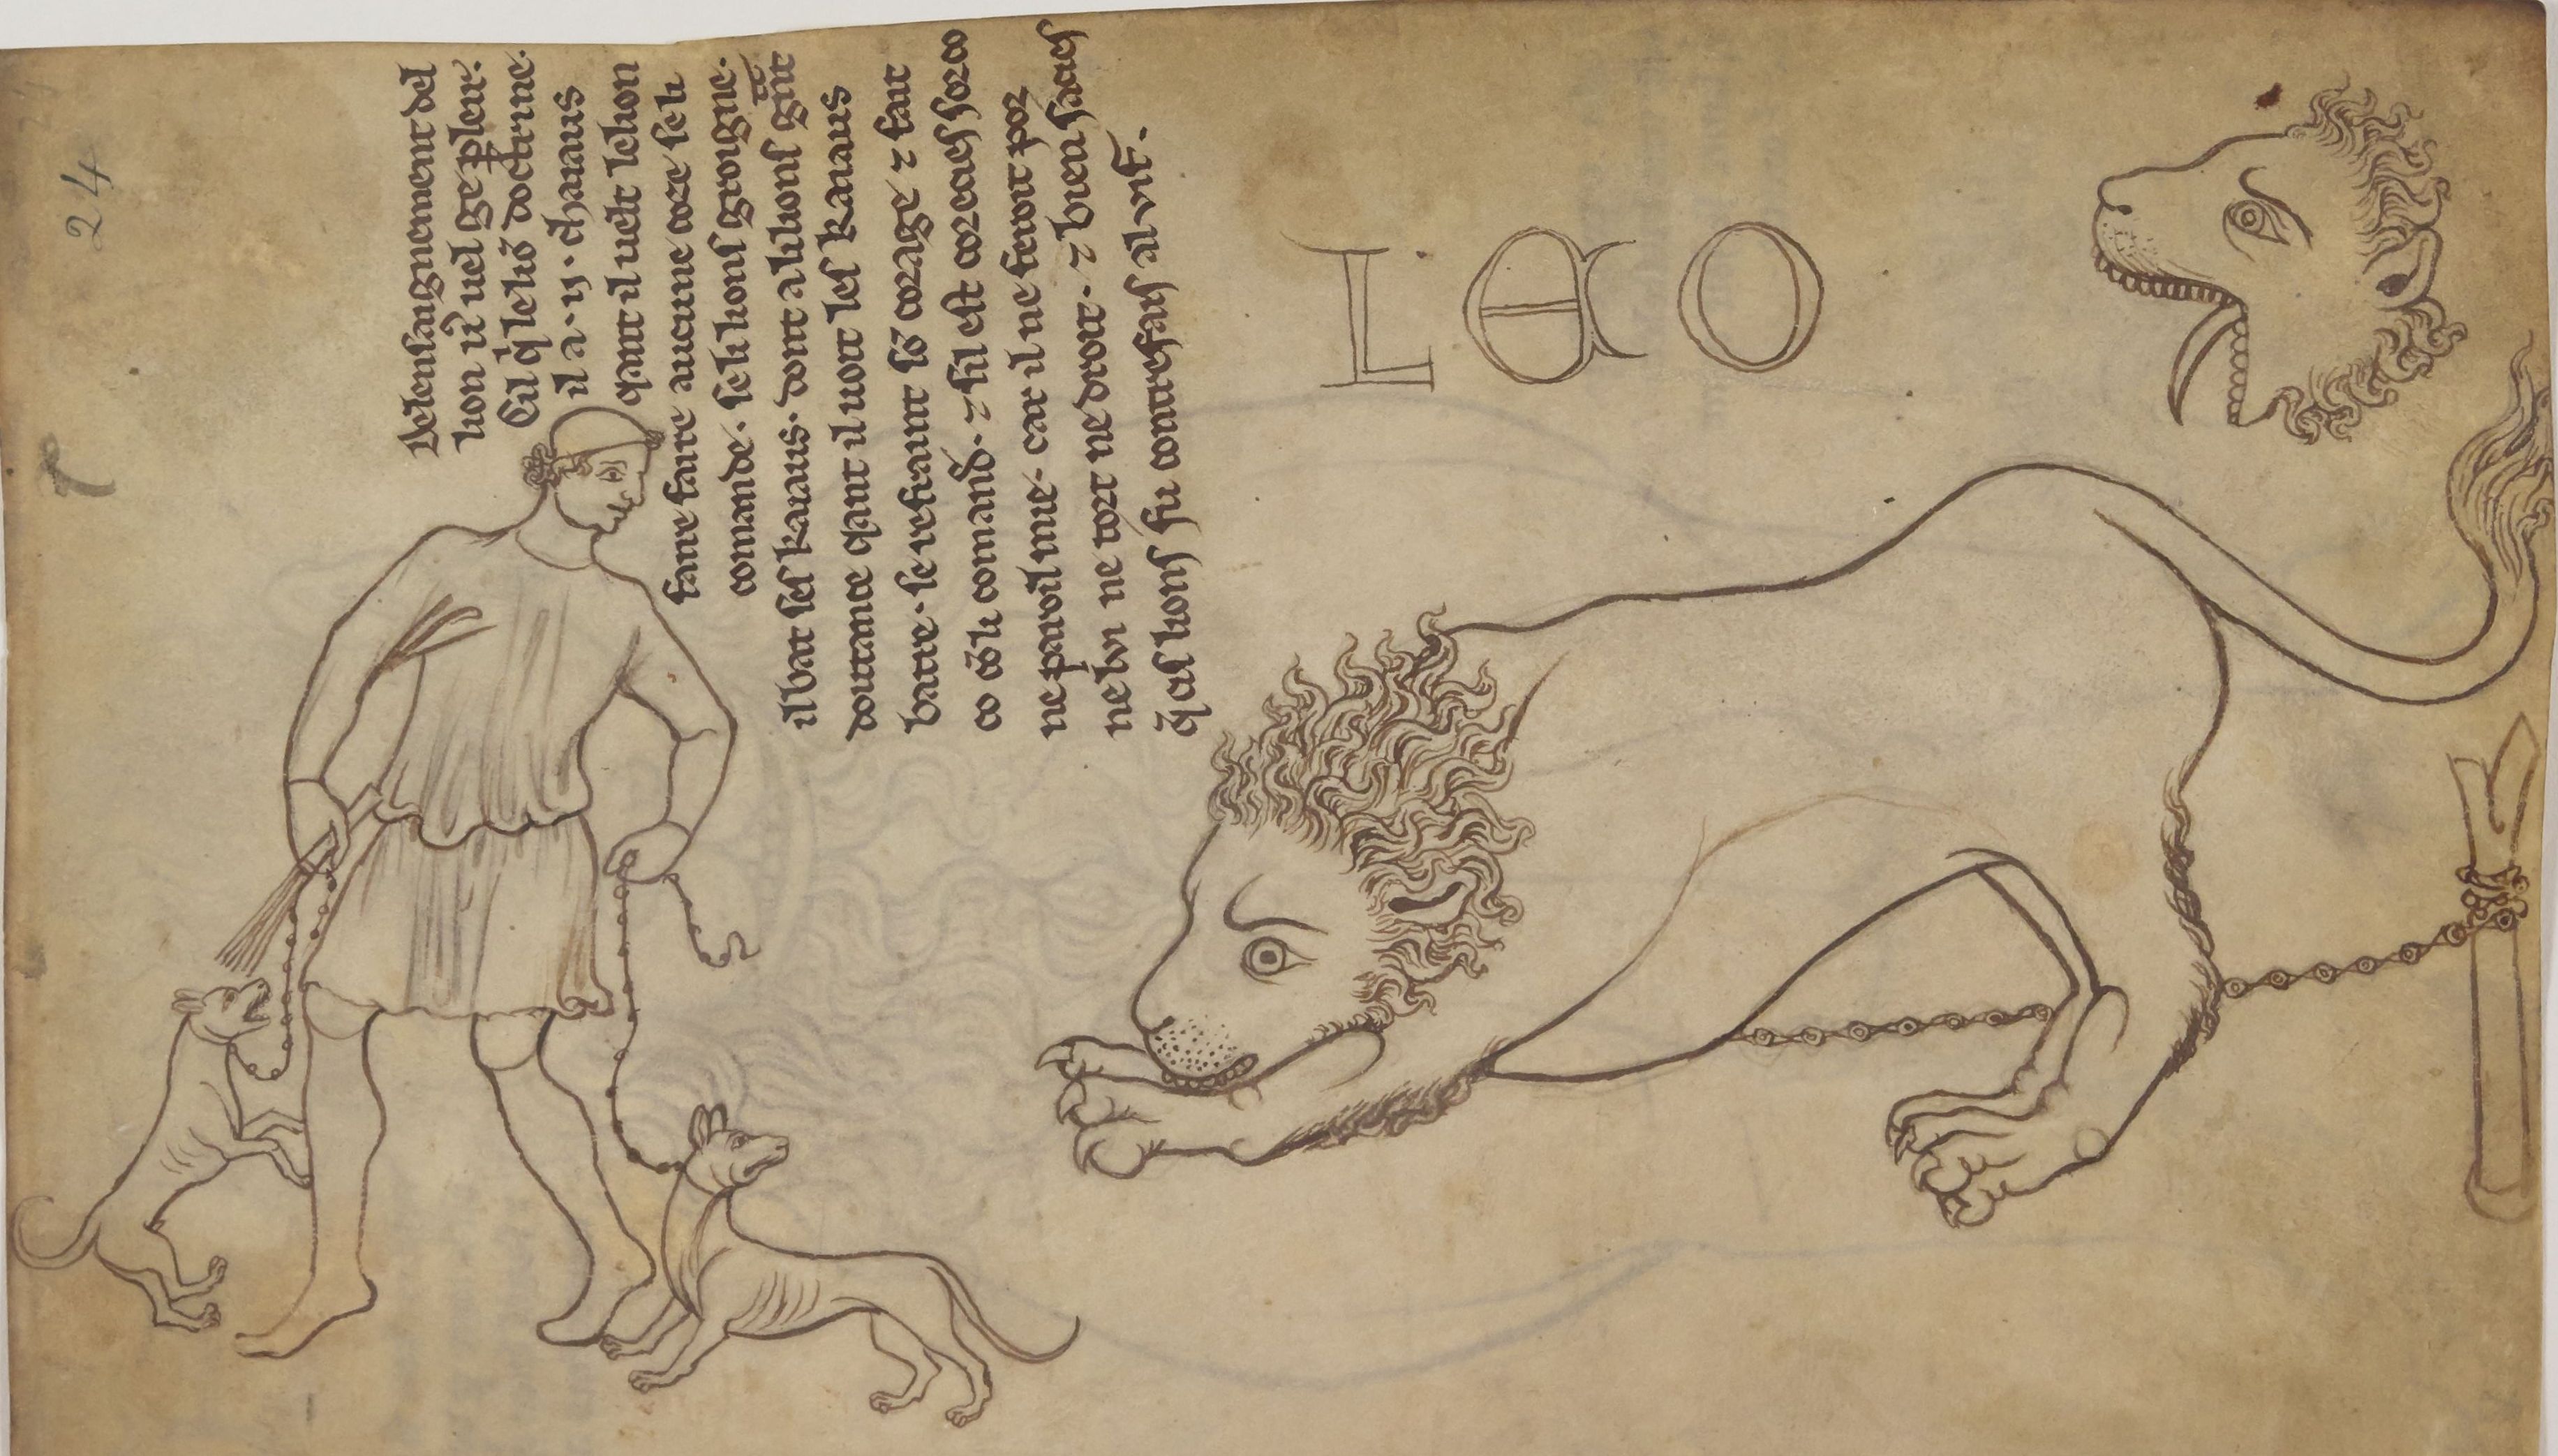 24
De lensaignement del
lion ũ uel ge pleir.
Cil q̾ le liõ doctrine.
il a .ij. chaiaus
qant il uelt le lion
faire faire aucune coze se li
comande. se li lions groigne.
il bat ses kaiaus. dont a li lions gñt
doutance qant il uoit les kaiaus
batre. se refraint sõ corage ⁊ fait
co cõ li comand̃. ⁊ sil est coreciés sor co
ne paroil mie. car il ne feroit por
nelui ne tort ne droit. ⁊ bien saciés
q̃ cis lions fu contrefais al vif.
LEO